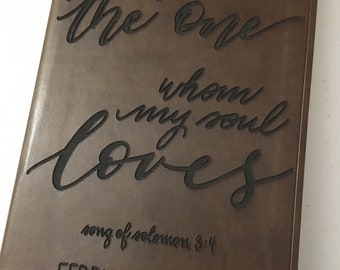 the one
whom
my soul
loves
song of solomon 3:4